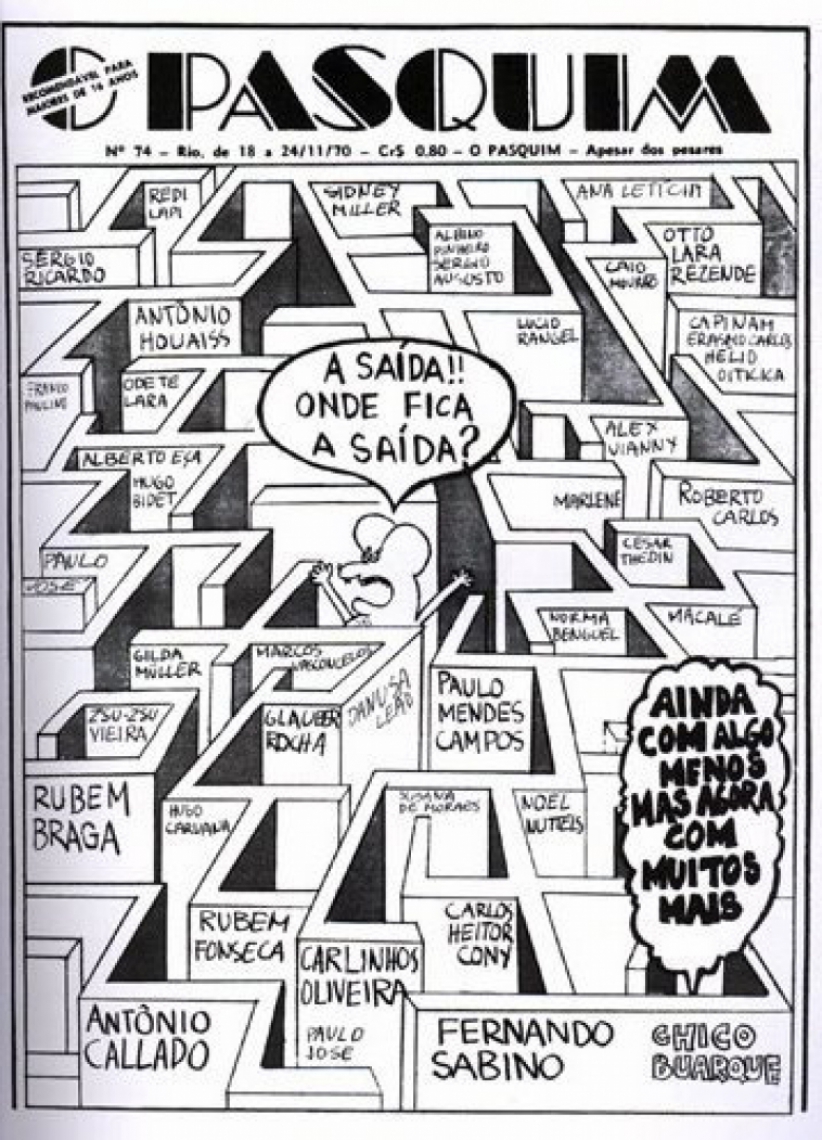 O PASQUIM
RECOMENDÁVEL PARA
MAIORES DE 16 ANOS
Nº 74 – Rio, de 18 a 24/11/70 – Cr$ 0,80 – O PASQUIM – Apesar dos pesares
REDI
LAPI
SIDNEY
MILLER
ANA LETÍCIA
SÉRGIO
RICARDO
ALBINO
PINHEIRO
SÉRGIO
AUGUSTO
CAIO
MOURÃO
OTTO
LARA
REZENDE
ANTÔNIO
HOUAISS
LUCIO
RANGEL
CAPINAM
ERASMO CARLOS
HELIO
OITICICA
ODETE
LARA
A SAÍDA!!
ONDE FICA
A SAÍDA?
ALEX
VIANNY
ALBERTO EÇA
HUGO
BIDET
MARLENE
ROBERTO
CARLOS
PAULO
JOSÉ
CESAR
THEDIN
NORMA
BENGUEL
MACALÉ
GILDA
MÜLLER
MARCOS
VASCONCELOS
ZSU-ZSU
VIEIRA
GLAUBER
ROCHA
DANUSA
LEÃO
PAULO
MENDES
CAMPOS
AINDA
COM ALGO
MENOS
MAS AGORA
COM
MUITOS
MAIS
RUBEM
BRAGA
HUGO
CARVANA
SUSANA
DE MORAES
NOEL
NUTELS
RUBEM
FONSECA
CARLINHOS
OLIVEIRA
PAULO
JOSE
CARLOS
HEITOR
CONY
ANTÔNIO
CALLADO
FERNANDO
SABINO
CHICO
BUARQUE